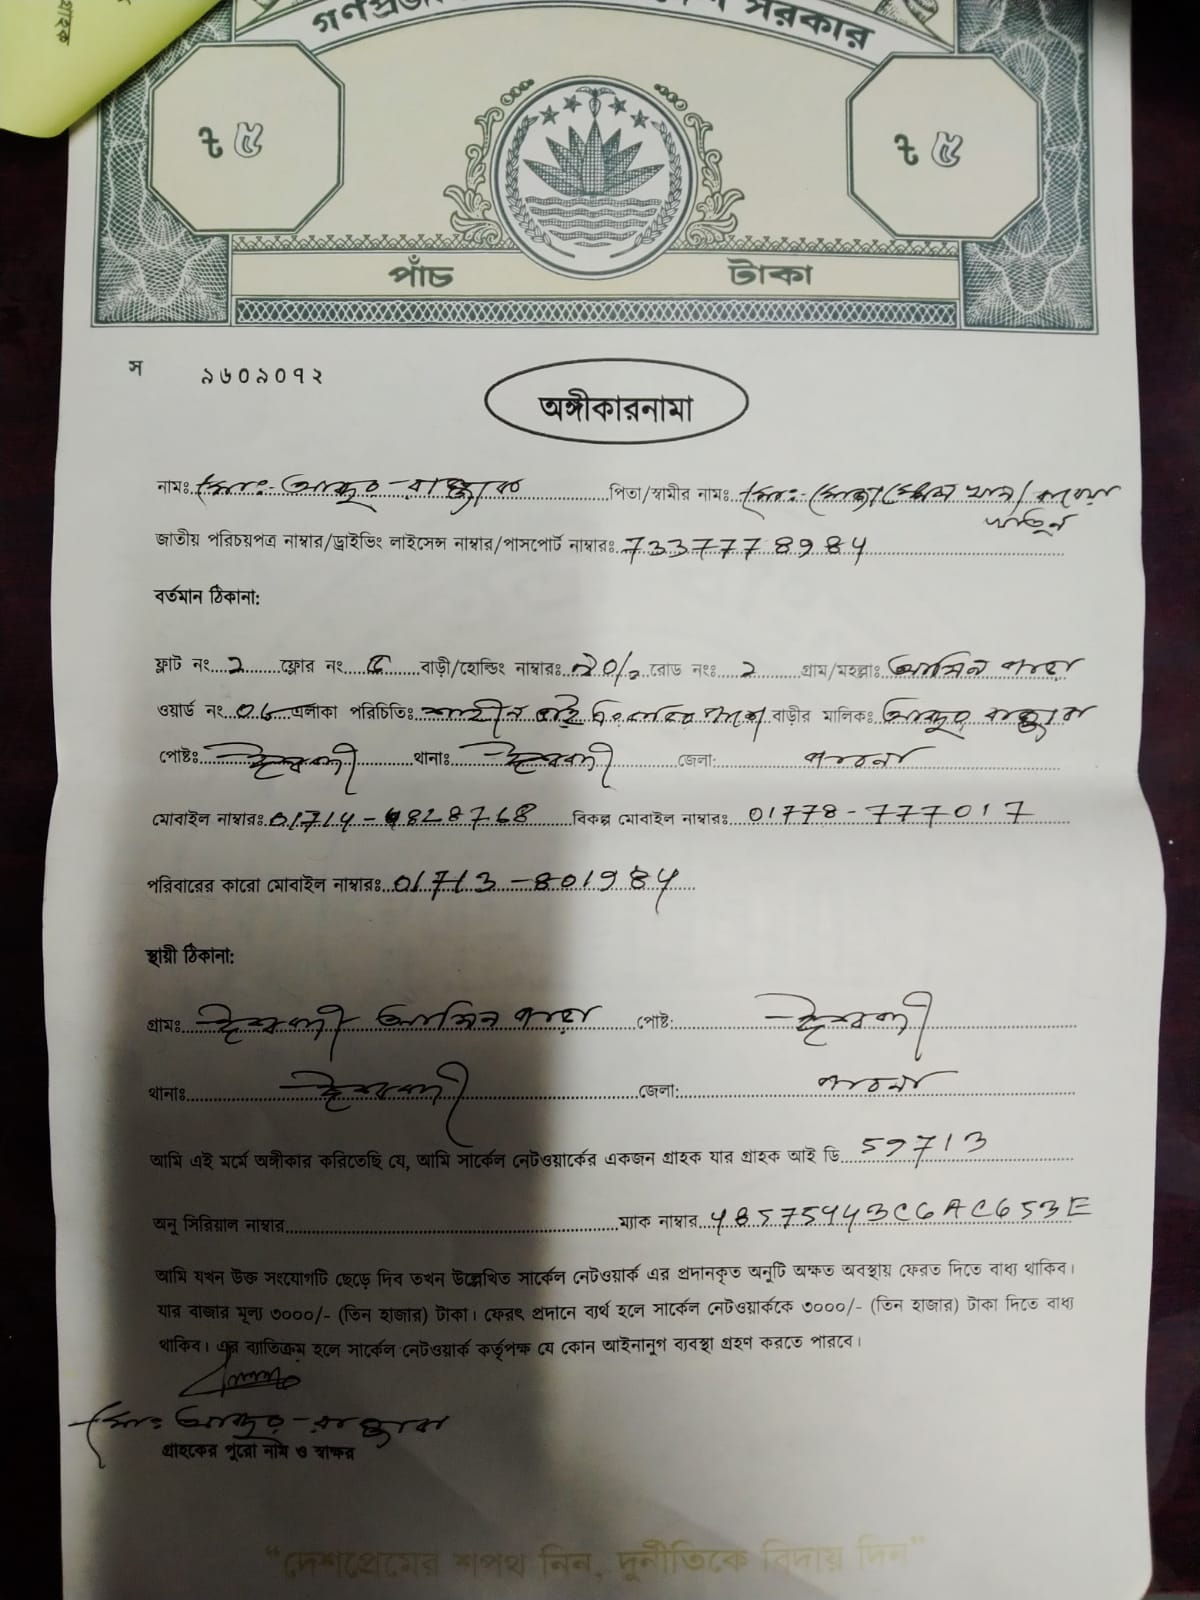 গ্রাহক
গণপ্রজা সরকার
৳ ৫ ৳ ৫
পাঁচ টাকা
স ৯৬০৯০৭২
অঙ্গীকারনামা
নামঃ মোঃ- আব্দুর রাজ্জাক পিতা/স্বামীর নামঃ মোঃ-
জাতীয় পরিচয়পত্র নাম্বার/ড্রাইভিং লাইসেন্স নাম্বার/পাসপোর্ট নাম্বারঃ 7337778984
বর্তমান ঠিকানা:
ফ্লাট নং 2 ফ্লোর নং বাড়ী/হোল্ডিং নাম্বারঃ রোড নংঃ 2 গ্রাম/মহল্লাঃ আমিন পাড়া
ওয়ার্ড নং 06 এলাকা পরিচিতিঃ বাড়ীর মালিকঃ আব্দুর রাজ্জাক
পোষ্টঃ ঈশ্বরদী থানাঃ ঈশ্বরদী জেলা: পাবনা
মোবাইল নাম্বারঃ 01714-9828768 বিকল্প মোবাইল নাম্বারঃ 01778-777017
পরিবারের কারো মোবাইল নাম্বারঃ 01713-801984
স্থায়ী ঠিকানা:
গ্রামঃ ঈশ্বরদী আমিন পাড়া পোষ্ট: ঈশ্বরদী
থানাঃ ঈশ্বরদী জেলা: পাবনা
আমি এই মর্মে অঙ্গীকার করিতেছি যে, আমি সার্কেল নেটওয়ার্কের একজন গ্রাহক যার গ্রাহক আই ডি 59713
অনু সিরিয়াল নাম্বার ম্যাক নাম্বার 48575443C6AC653E
আমি যখন উক্ত সংযোগটি ছেড়ে দিব তখন উল্লেখিত সার্কেল নেটওয়ার্ক এর প্রদানকৃত অনুটি অক্ষত অবস্থায় ফেরত দিতে বাধ্য থাকিব।
যার বাজার মূল্য ৩০০০/- (তিন হাজার) টাকা। ফেরৎ প্রদানে ব্যর্থ হলে সার্কেল নেটওয়ার্ককে ৩০০০/- (তিন হাজার) টাকা দিতে বাধ্য
থাকিব। এর ব্যাতিক্রম হলে সার্কেল নেটওয়ার্ক কর্তৃপক্ষ যে কোন আইনানুগ ব্যবস্থা গ্রহণ করতে পারবে।
মোঃ আব্দুর রাজ্জাক
গ্রাহকের পুরো নাম ও স্বাক্ষর
“দেশপ্রেমের শপথ নিন, দুর্নীতিকে বিদায় দিন”